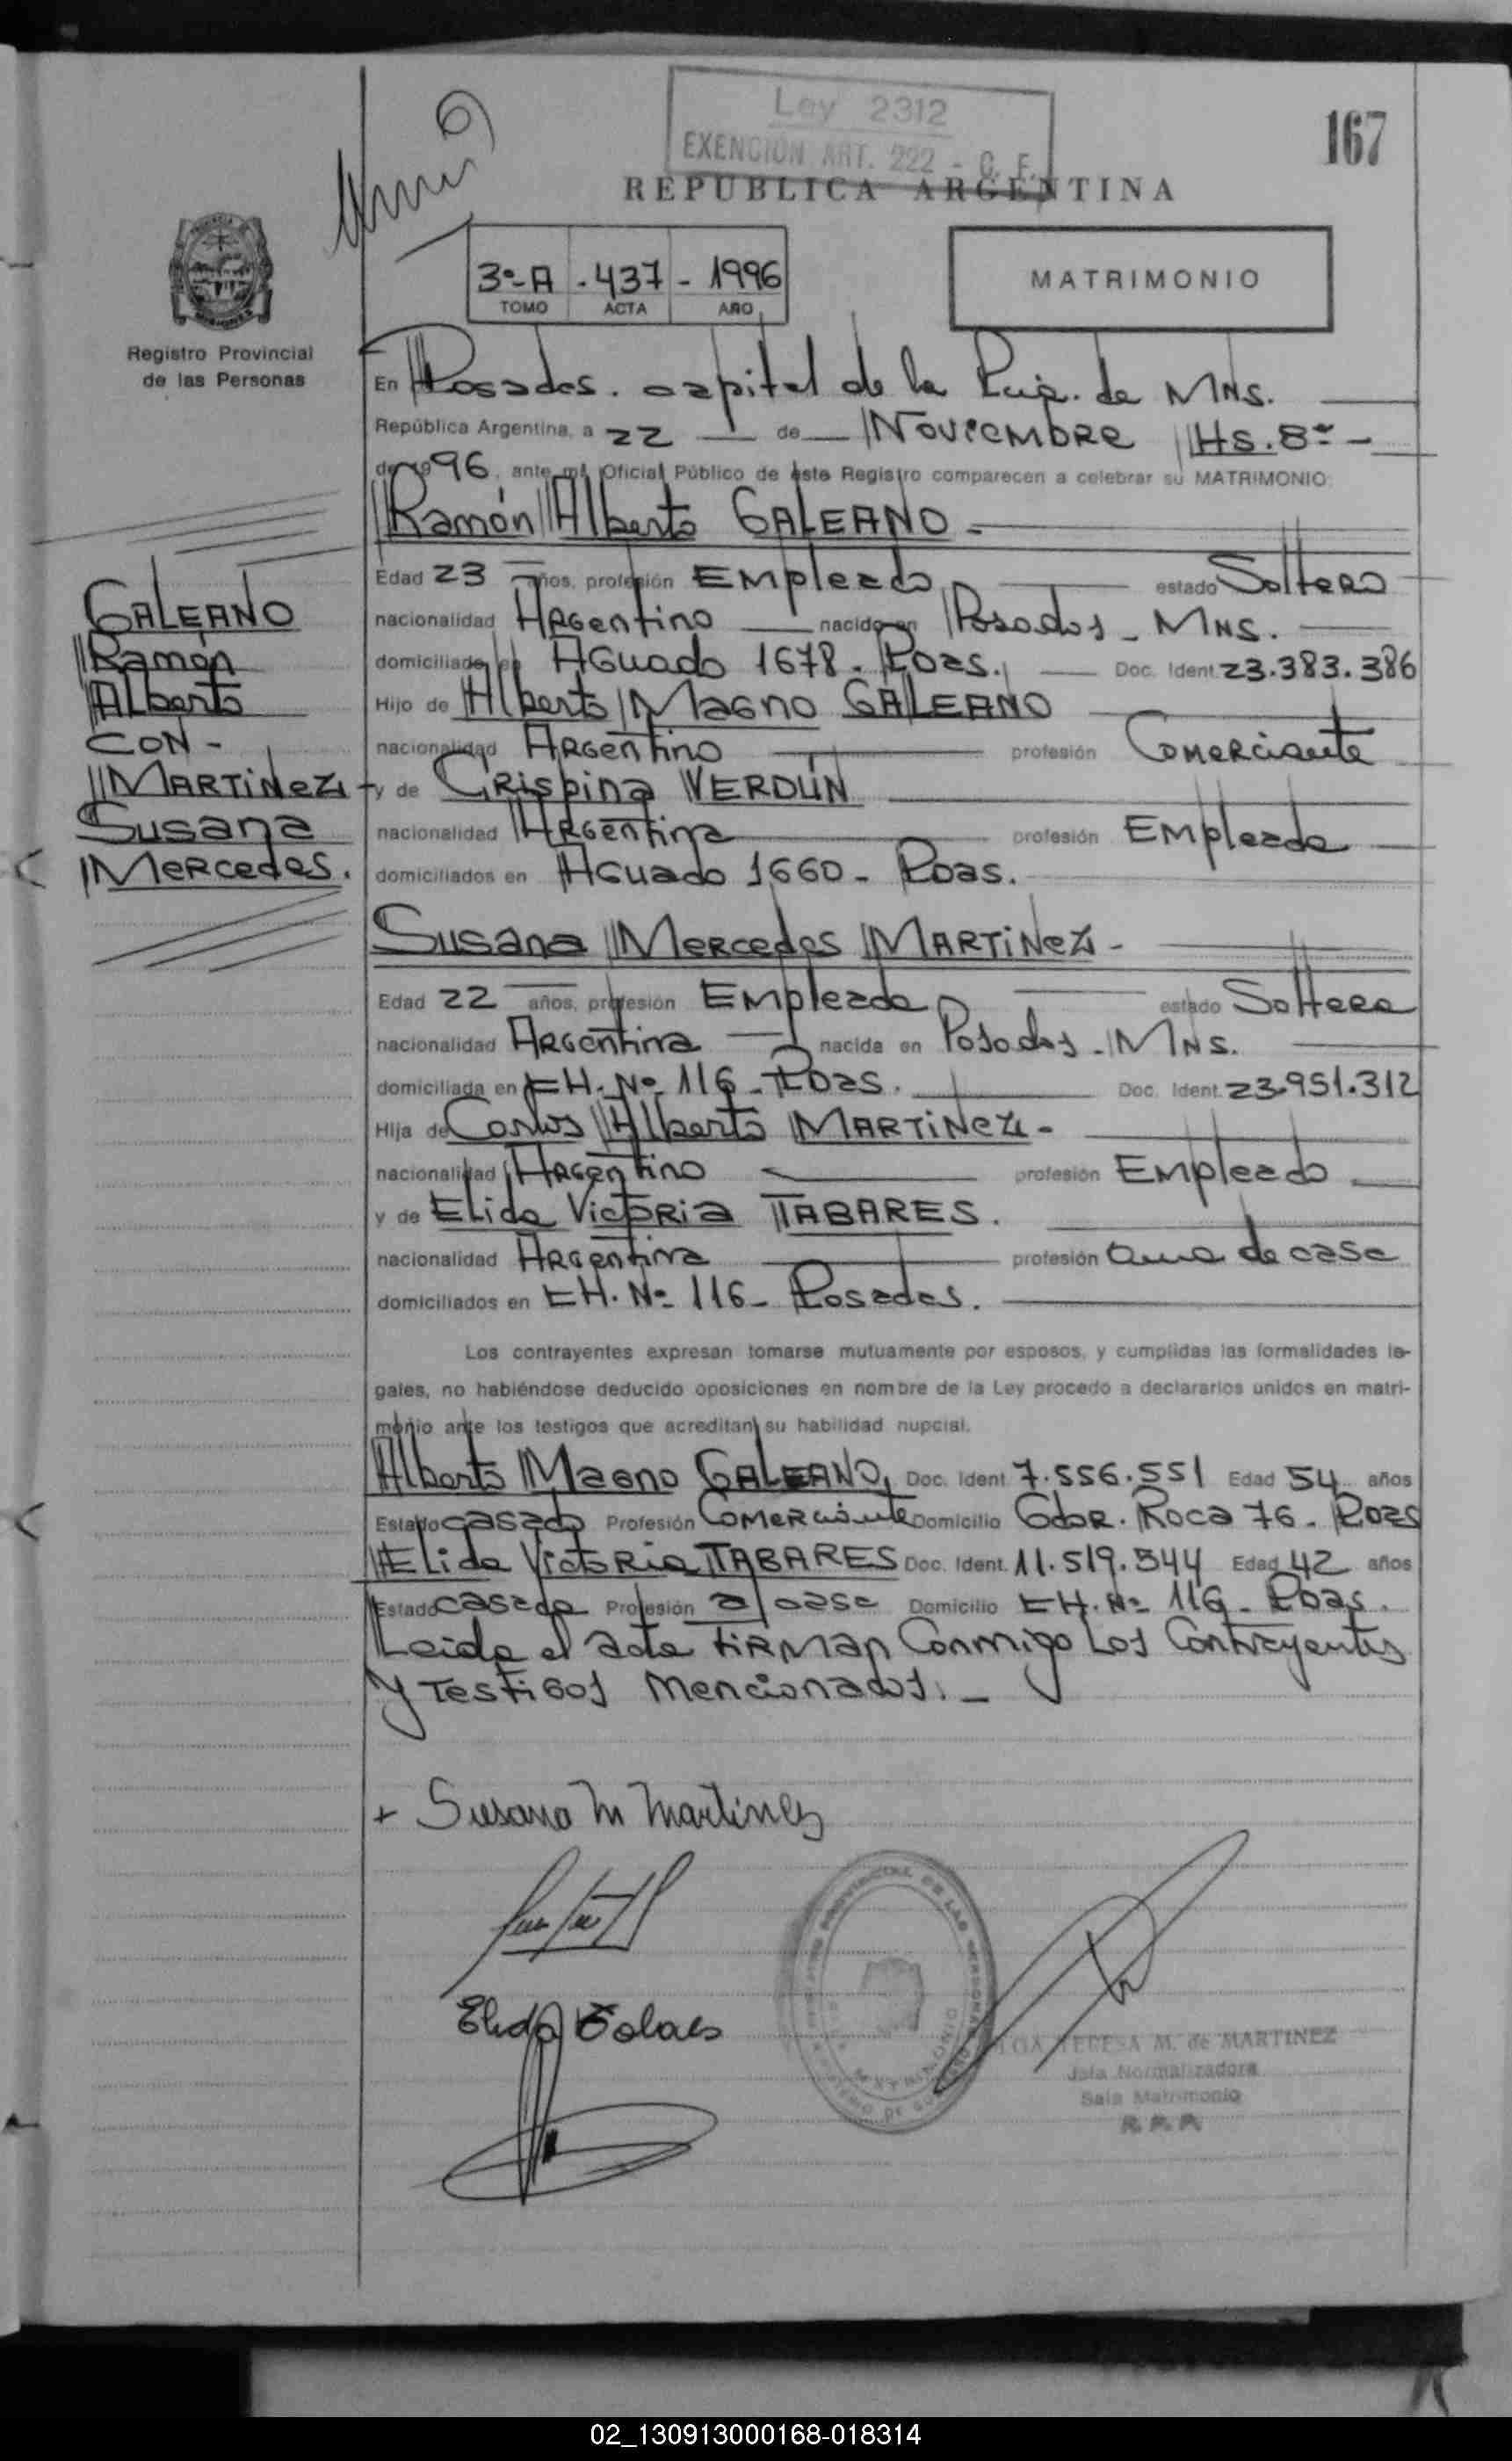 Ley 2312
EXENCION ART. 222 - C. F.
167
REPUBLICA ARGENTINA
3º-A - 437 - 1996
TOMO ACTA AÑO
MATRIMONIO
Registro Provincial
de las Personas
En Posadas. capital de la de MNS.
República Argentina, a 22 de Noviembre Hs. 8
de 1996, ante mí, Oficial Público de este Registro comparecen a celebrar su MATRIMONIO:
Ramón Alberto GALEANO -
Edad 23 años, profesión Empleado estado Soltero
nacionalidad Argentino nacido en Posadas - MNS.
domiciliado en Aguado 1678 - Pdas. Doc. Ident. 23.383.386
Hijo de Alberto Magno GALEANO
nacionalidad Argentino profesión Comerciante
y de Crispina VERDÚN
nacionalidad Argentina profesión Empleada
domiciliados en Aguado 1660 - Pdas.
GALEANO
Ramón
Alberto
CON -
MARTINEZ
Susana
Mercedes.
Susana Mercedes MARTINEZ -
Edad 22 años, profesión Empleada estado Soltera
nacionalidad Argentina nacida en Posadas - MNS.
domiciliada en CH. Nº 116 - Pdas. Doc. Ident. 23.951.312
Hija de Carlos Alberto MARTINEZ -
nacionalidad Argentino profesión Empleado
y de Elida Victoria TABARES.
nacionalidad Argentina profesión ama de casa
domiciliados en CH. Nº 116 - Posadas.
Los contrayentes expresan tomarse mutuamente por esposos, y cumplidas las formalidades le-
gales, no habiéndose deducido oposiciones en nombre de la Ley procedo a declararlos unidos en matri-
monio ante los testigos que acreditan su habilidad nupcial.
Alberto Magno GALEANO, Doc. Ident. 7.556.551 Edad 54 años
Estado casado Profesión Comerciante Domicilio Gdor. Roca 76 - Pdas
Elida Victoria TABARES Doc. Ident. 11.519.544 Edad 42 años
Estado casada Profesión a/casa Domicilio CH. Nº 116 - Pdas.
Leida el acta firman Conmigo Los Contrayentes
y Testigos Mencionados. -
+ Susana M Martinez
Elida
TERESA M. de MARTINEZ
Jefa Normalizadora
Sala Matrimonio
R. P. P.
02_130913000168-018314